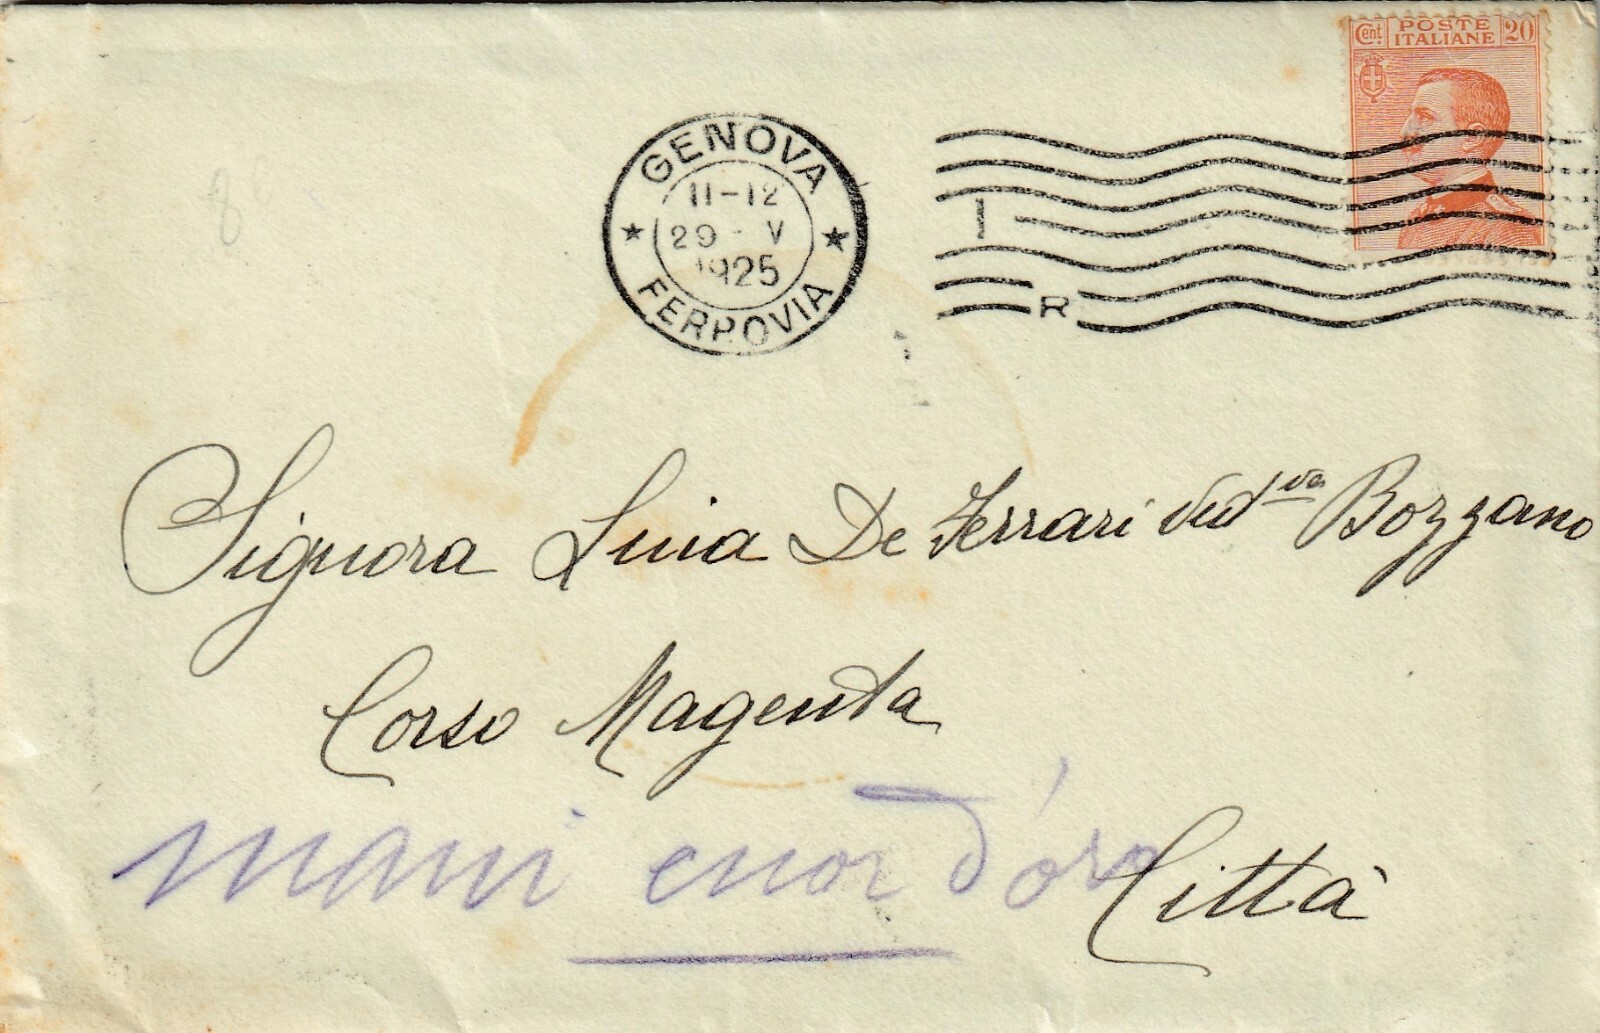 Cent POSTE ITALIANE 20
GENOVA
11-12
29 - V
1925
FERROVIA
I
R
Signora Luia De Ferrari Ved.va Bozzano
Corso Magenta
mani cuor d'oro
Città